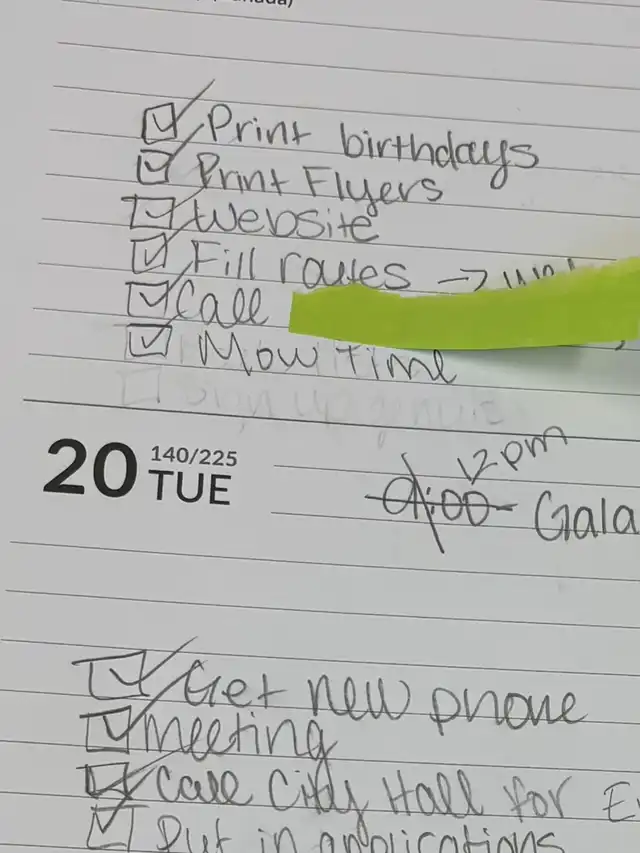 Print birthdays
Print Flyers
Website
Fill routes →
Call
Mow time
Sign up
20 140/225 TUE
12pm
9:00 - Gala
Get new phone
meeting
Call City Hall for
Put in applications